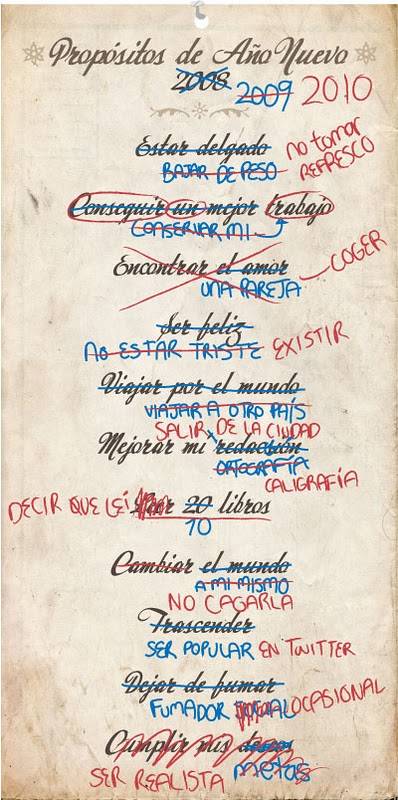 Propósitos de Año Nuevo
2008
2009 2010
Estar delgado
BAJAR DE PESO
no tomar
REFRESCO
Conseguir un mejor trabajo
CONSERVAR MI
Encontrar el amor
UNA PAREJA
COGER
Ser feliz
NO ESTAR TRISTE EXISTIR
Viajar por el mundo
VIAJAR A OTRO PAÍS
SALIR DE LA CIUDAD
Mejorar mi redacción
ORTOGRAFÍA
CALIGRAFÍA
DECIR QUE LEÍ Leer 20 libros
10
Cambiar el mundo
A MI MISMO
NO CAGARLA
Trascender
SER POPULAR EN TWITTER
Dejar de fumar
FUMADOR SOCIAL OCASIONAL
Cumplir mis deseos
METAS
SER REALISTA